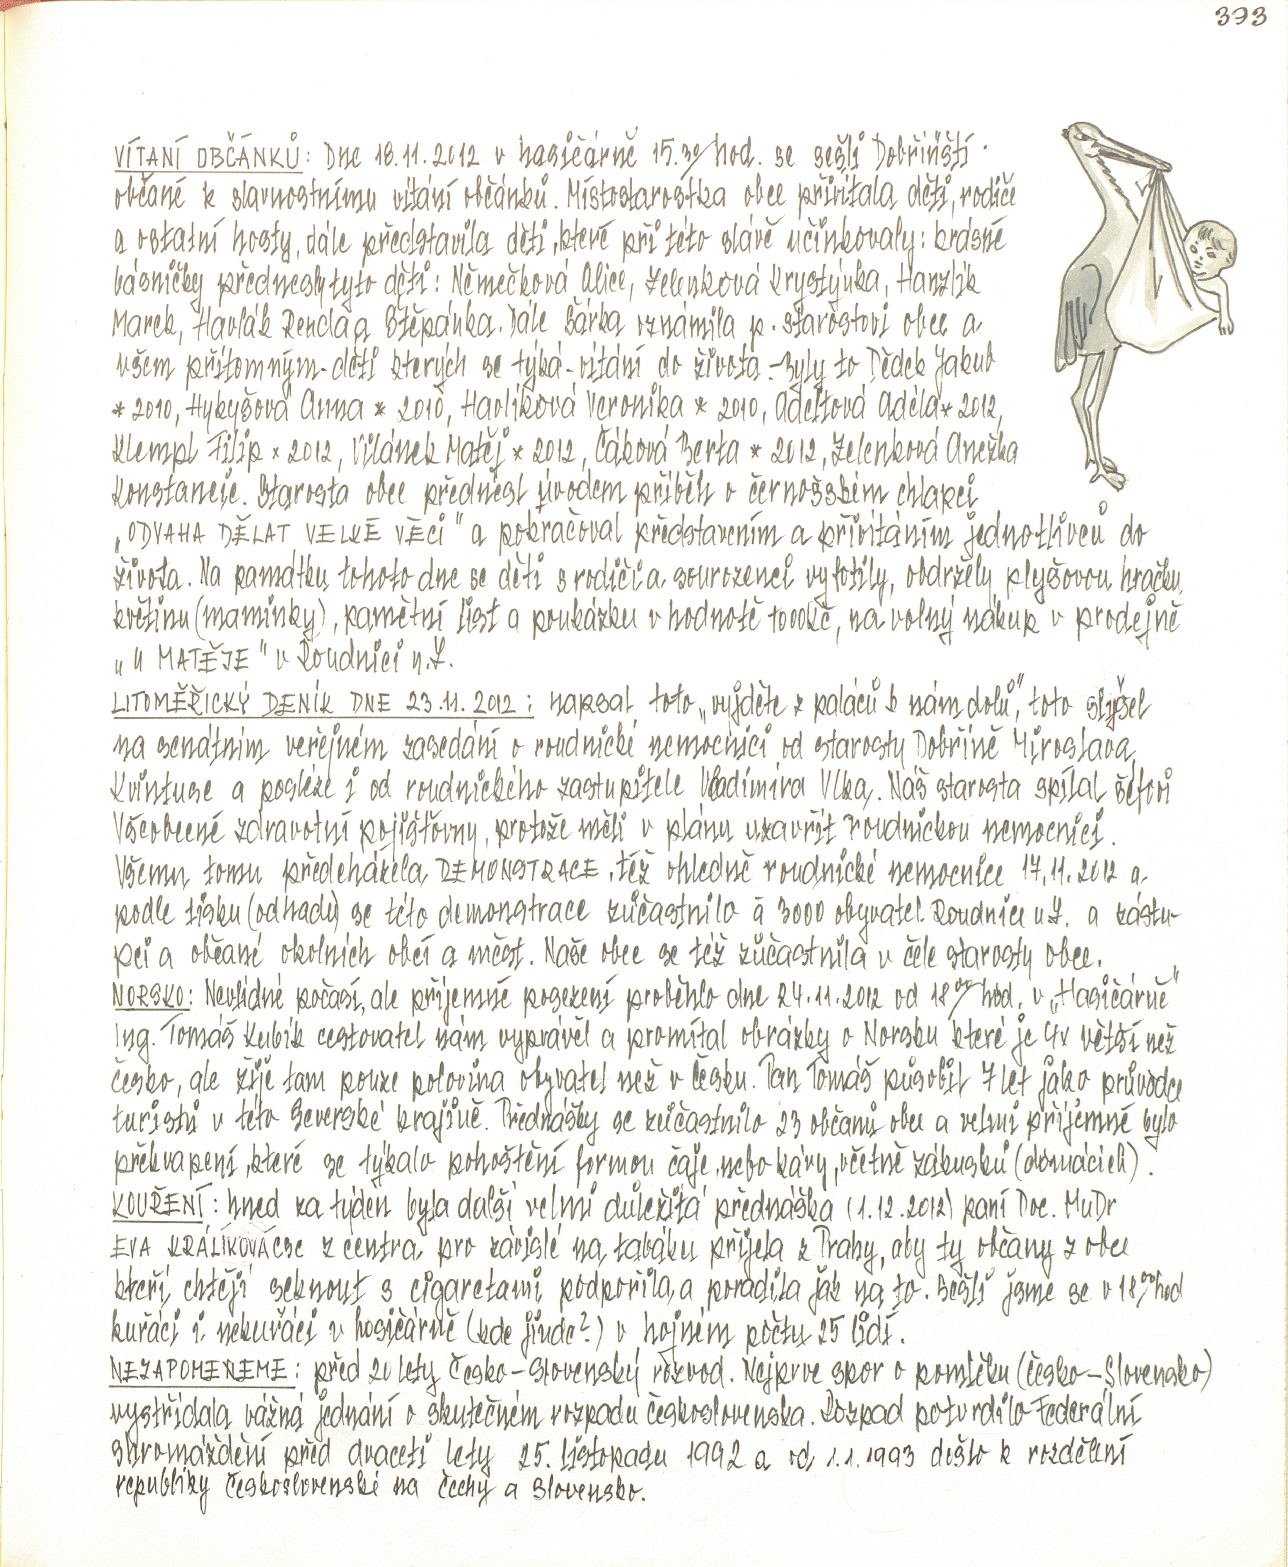 393
VÍTANÍ OBČÁNKŮ: Dne 18.11.2012 v hasičárně 15.30 hod. se sešli Dobříňští
občané k slavnostnímu vítání občánků. Místostarostka obce přivítala děti, rodiče
a ostatní hosty, dále představila děti, které při této slávě účinkovaly: krásné
básničky přednesly tyto děti: Němečková Alice, Zelenková Krystýnka, Hanzlík
Marek, Havlák René a Štěpánka. Dále Šárka oznámila p. starostovi obce a
všem přítomným - děti kterých se týká - vítání do života - Byly to Dědek Jakub
* 2010, Hykyšová Anna * 2010, Havlíková Veronika * 2010, Adeltová Adéla * 2012,
Klempl Filip * 2012, Vilánek Matěj * 2012, Čáková Berta * 2012, Zelenková Anežka
Konstancie. Starosta obce přednesl úvodem příběh o černošském chlapci
„ODVAHA DĚLAT VELKÉ VĚCI" a pokračoval představením a přivítáním jednotlivců do
života. Na památku tohoto dne se děti s rodiči a sourozenci vyfotily, obdržely plyšovou hračku,
květinu (maminky), pamětní list a poukázku v hodnotě 1000kč, na volný nákup v prodejně
„U MATĚJE" v Roudnici n.L.
LITOMĚŘICKÝ DENÍK DNE 23.11.2012: napsal toto „vyjděte z paláců k nám dolů", toto slyšel
na senátním veřejném zasedání o roudnické nemocnici od starosty Dobříně Miroslava
Kvintuse a posléze i od roudnického zastupitele Vladimíra Vlka. Náš starosta spílal šéfovi
Všeobecné zdravotní pojišťovny, protože měli v plánu uzavřít roudnickou nemocnici.
Všemu tomu předcházela DEMONSTRACE, též ohledně roudnické nemocnice 17.11.2012 a
podle tisku (odhadu) se této demonstrace zúčastnilo á 3000 obyvatel Roudnice n.L. a zástu-
pci a občané okolních obcí a měst. Naše obec se též zúčastnila v čele starosty obce.
NORSKO: Nevlídné počasí, ale příjemné posezení proběhlo dne 24.11.2012 od 18 00 hod. v „Hasičárně"
Ing. Tomáš Kubík cestovatel nám vyprávěl a promítal obrázky o Norsku které je 4x větší než
česko, ale žije tam pouze polovina obyvatel než v česku. Pan Tomáš působil 7 let jako průvodce
turistů v této Severské krajině. Přednášky se zúčastnilo 23 občanů obce a velmi příjemné bylo
překvapení, které se týkalo pohoštění formou čaje, nebo kávy, včetně zákusků (domácích).
KOUŘENÍ: hned za týden byla další velmi důležitá přednáška (1.12.2012) paní Doc. MuDr
EVA KRÁLÍKOVÁ CSc z centra pro závislé na tabáku přijela z Prahy, aby ty občany z obce
kteří chtějí seknout s cigaretami podpořila, a poradila jak na to. Sešli jsme se v 18 00 hod
kuřáci i nekuřáci v hasičárně (kde jinde?) v hojném počtu 25 lidí.
NEZAPOMENEME: před 20 lety Česko-Slovenský rozvod. Nejprve spor o pomlčku (česko-Slovensko)
vystřídala vážná jednání o skutečném rozpadu československa. Rozpad potvrdilo Federální
shromáždění před dvaceti lety 25. listopadu 1992 a od 1.1.1993 došlo k rozdělení
republiky Československé na Čechy a Slovensko.